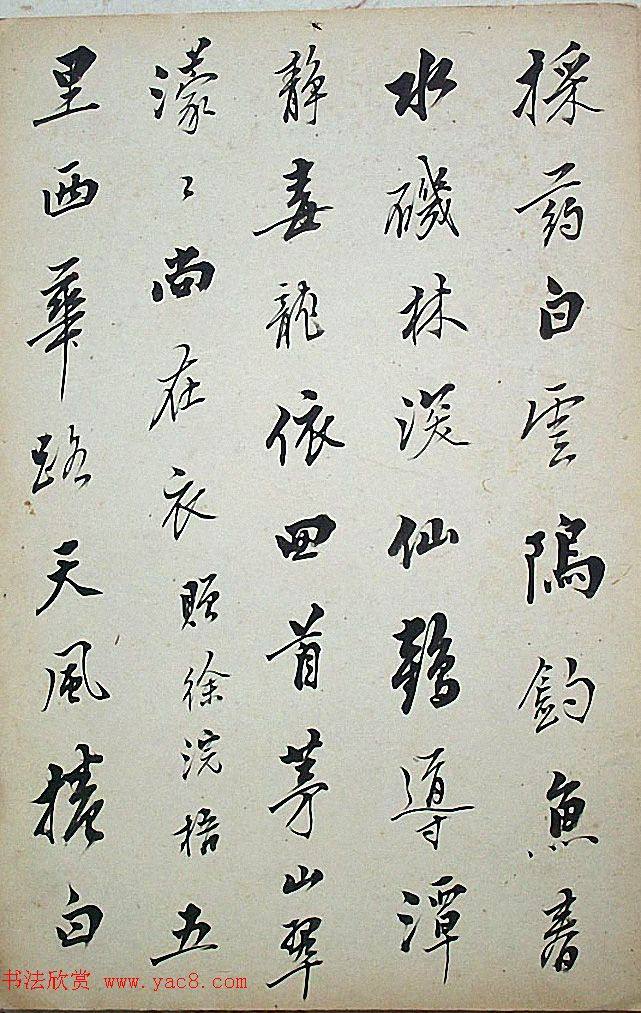 採药白雲隖釣魚春
水磯林深仙鶴導潭
静毒龍依回首茅山翠
濛〻尚在衣贈徐浣梧五
里西華路天風擣白
书法欣赏 www.yac8.com